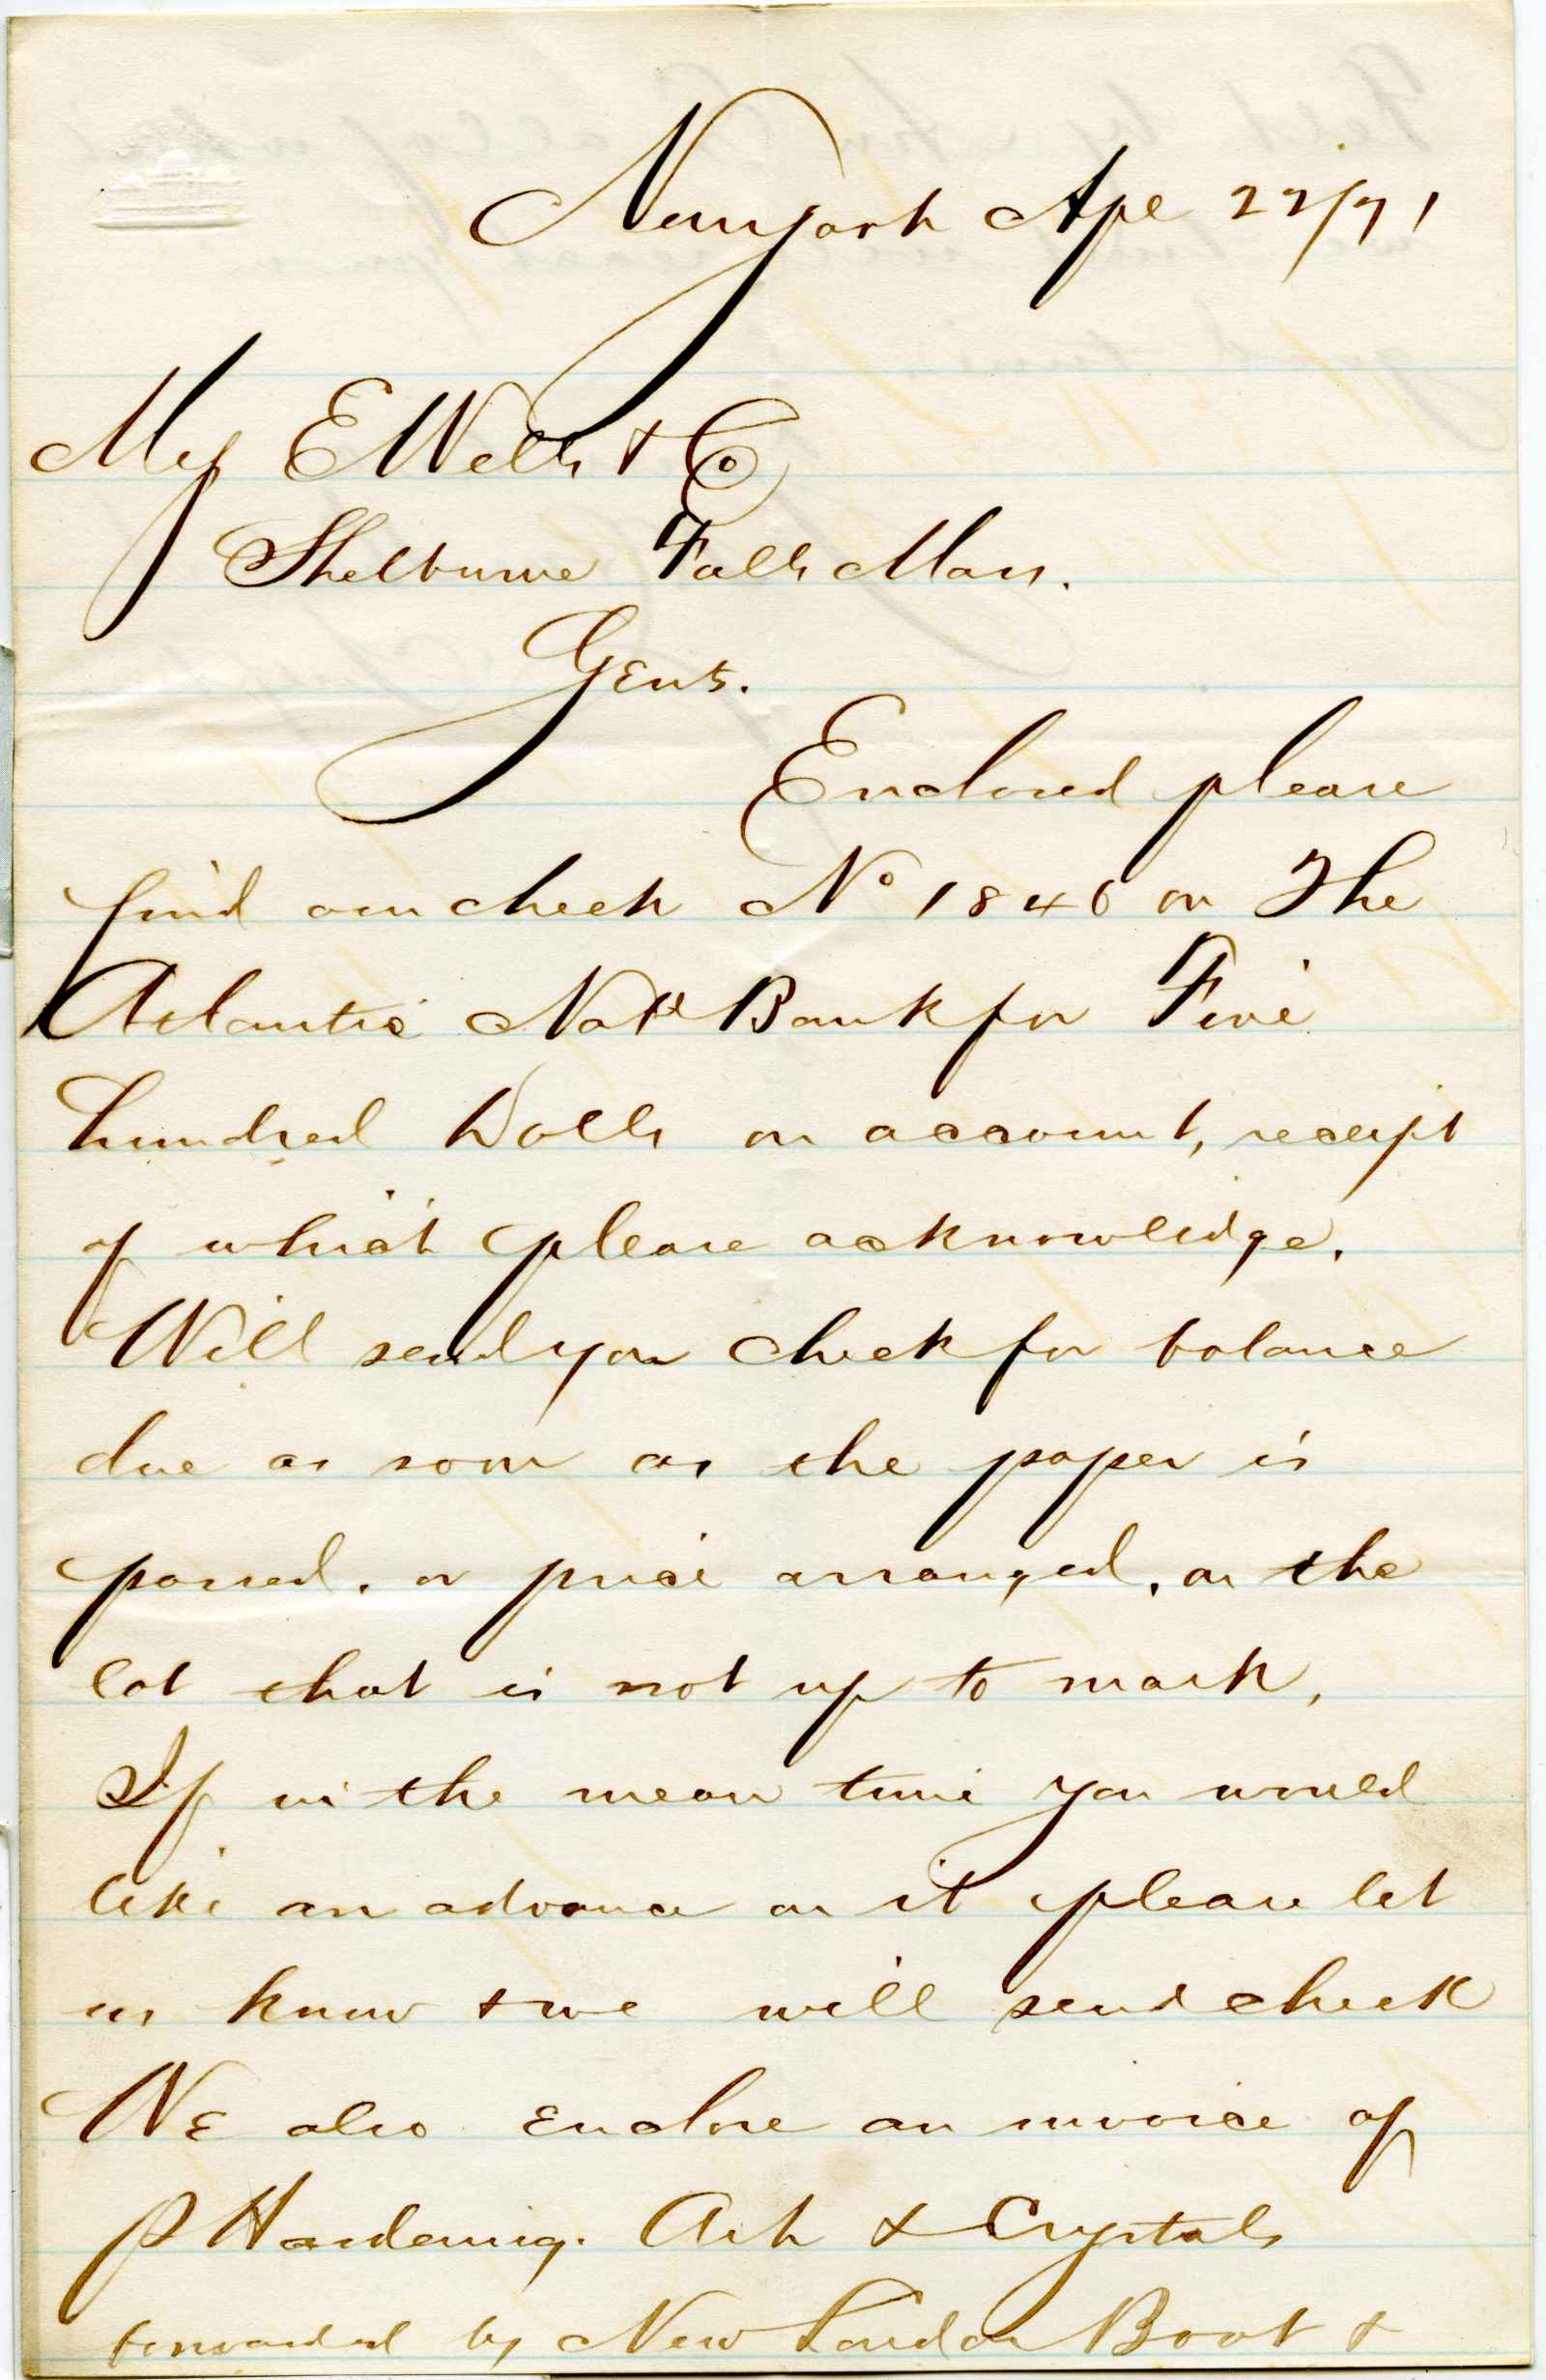 New York Apl 22/71
Mess E Wells & Co
Shelburne Falls Mass.
Gents.
Enclosed please
find our check No 1846 on The
Atlantic Natl Bank for Five
hundred Dolls on account, receipt
of which please acknowledge.
Will send you check for balance
due as soon as the paper is
passed. or price arranged. on the
lot that is not up to mark,
If in the mean time you would
like an advance on it please let
us know & we will send check
We also enclose an invoice of
Hardening. Ash & Crystals
forwarded by New London Boat &